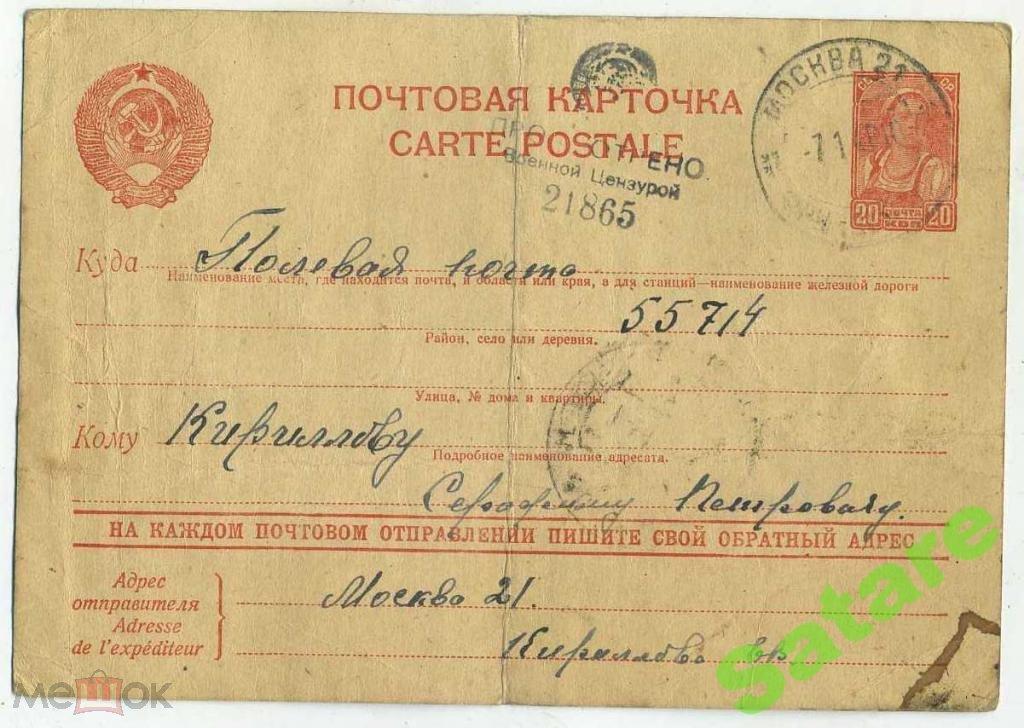 МОСКВА 21
ПОЧТОВАЯ КАРТОЧКА
CARTE POSTALE
Военной Цензурой
21865
20 ПОЧТА 20
КОП
Куда Полевая почта
Наименование места, где находится почта, и области или края, а для станций—наименование железной дороги
55714
Район, село или деревня.
Улица, № дома и квартиры.
Кому Кириллову
Подробное наименование адресата.
Серафиму Петровичу.
НА КАЖДОМ ПОЧТОВОМ ОТПРАВЛЕНИИ ПИШИТЕ СВОЙ ОБРАТНЫЙ АДРЕС
Адрес
отправителя
Adresse
de l'expéditeur
Москва 21.
Кириллова
Satare
мешок